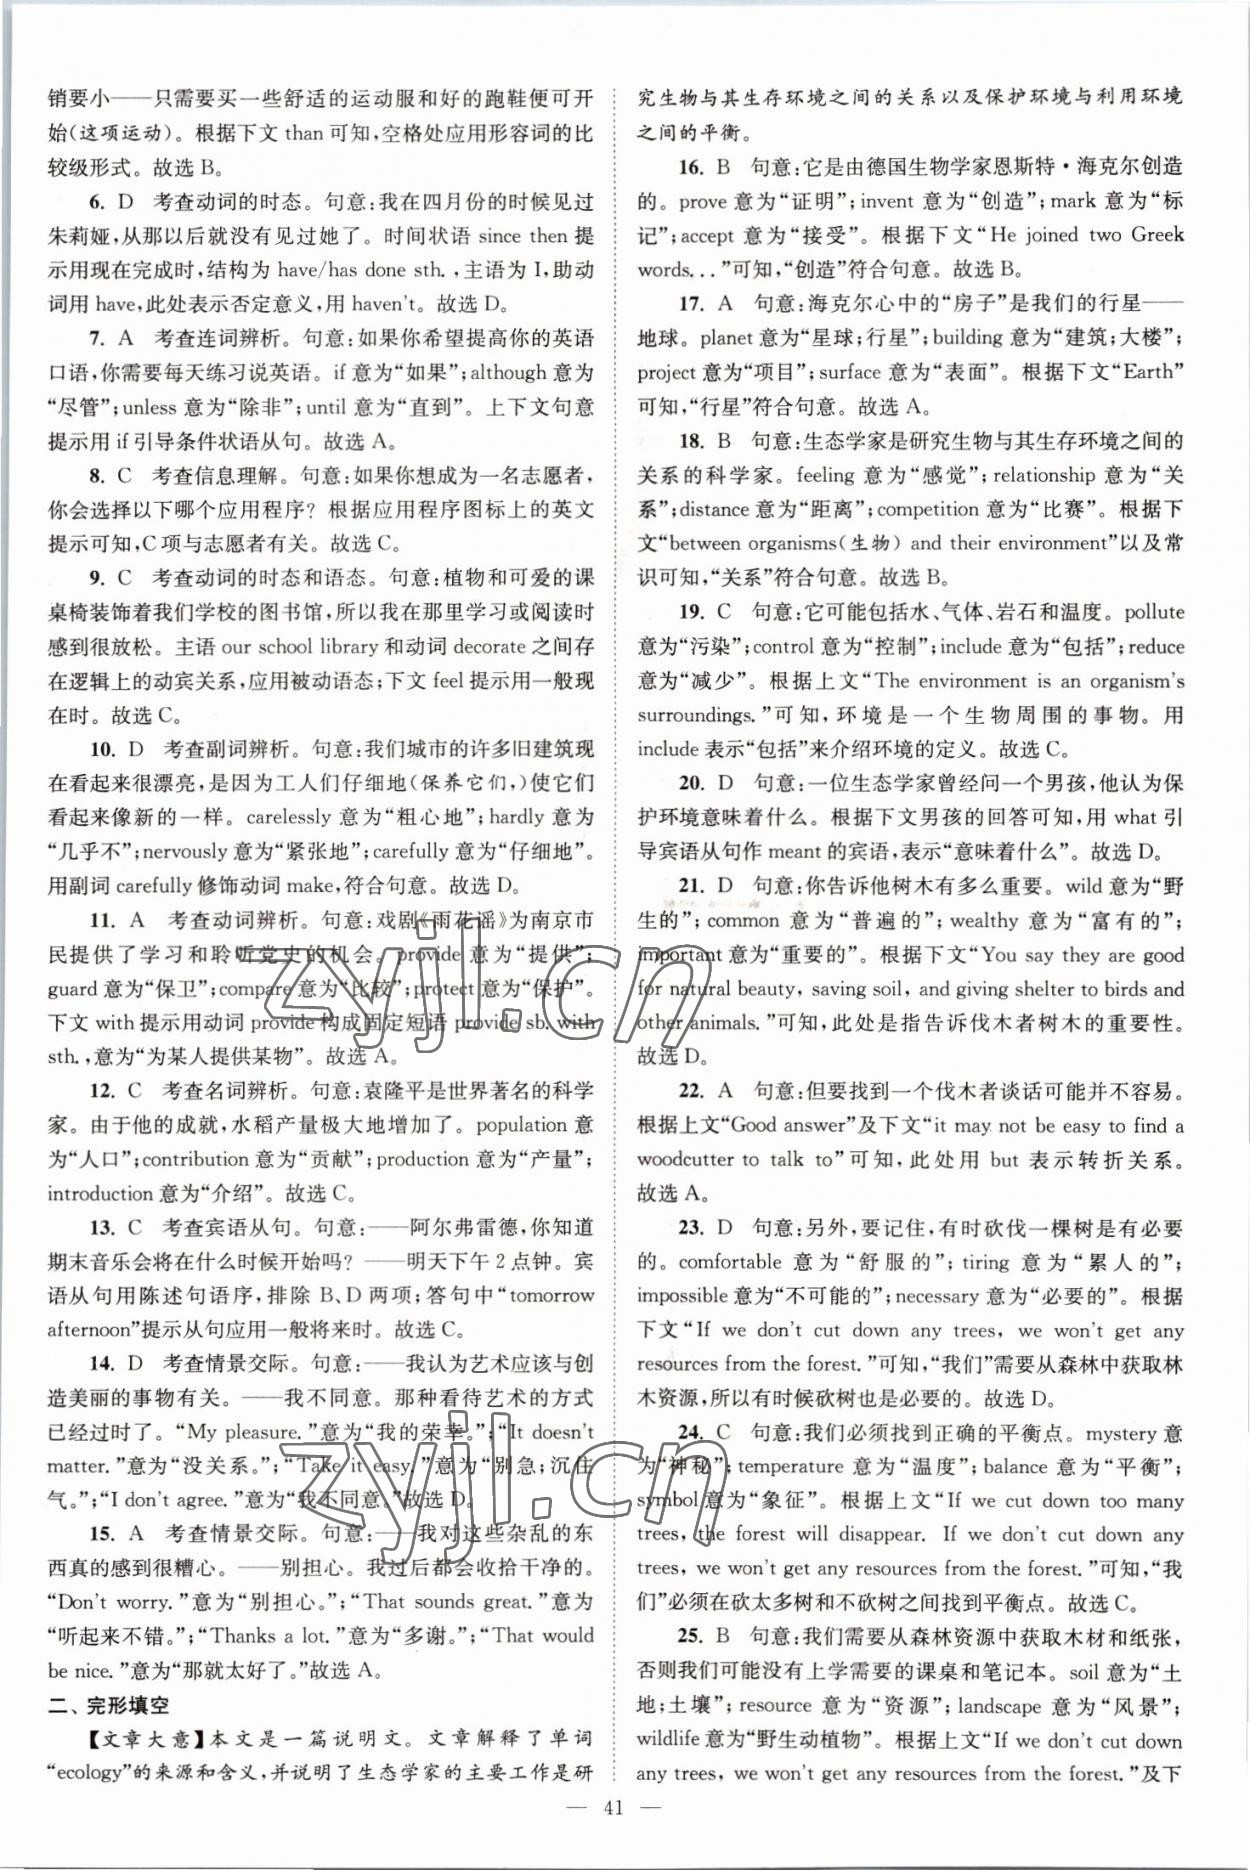 销要小——只需要买一些舒适的运动服和好的跑鞋便可开
始(这项运动)。根据下文 than 可知,空格处应用形容词的比
较级形式。故选 B。
6. D 考查动词的时态。句意:我在四月份的时候见过
朱莉娅,从那以后就没有见过她了。时间状语 since then 提
示用现在完成时,结构为 have/has done sth.,主语为 I,助动
词用 have,此处表示否定意义,用 haven't。故选 D。
7. A 考查连词辨析。句意:如果你希望提高你的英语
口语,你需要每天练习说英语。if 意为“如果”;although 意为
“尽管”;unless 意为“除非”;until 意为“直到”。上下文句意
提示用 if 引导条件状语从句。故选 A。
8. C 考查信息理解。句意:如果你想成为一名志愿者,
你会选择以下哪个应用程序?根据应用程序图标上的英文
提示可知,C 项与志愿者有关。故选 C。
9. C 考查动词的时态和语态。句意:植物和可爱的课
桌椅装饰着我们学校的图书馆,所以我在那里学习或阅读时
感到很放松。主语 our school library 和动词 decorate 之间存
在逻辑上的动宾关系,应用被动语态;下文 feel 提示用一般现
在时。故选 C。
10. D 考查副词辨析。句意:我们城市的许多旧建筑现
在看起来很漂亮,是因为工人们仔细地(保养它们,)使它们
看起来像新的一样。carelessly 意为“粗心地”;hardly 意为
“几乎不”;nervously 意为“紧张地”;carefully 意为“仔细地”。
用副词 carefully 修饰动词 make,符合句意。故选 D。
11. A 考查动词辨析。句意:戏剧《雨花谣》为南京市
民提供了学习和聆听党史的机会。provide 意为“提供”;
guard 意为“保卫”;compare 意为“比较”;protect 意为“保护”。
下文 with 提示用动词 provide 构成固定短语 provide sb. with
sth.,意为“为某人提供某物”。故选 A。
12. C 考查名词辨析。句意:袁隆平是世界著名的科学
家。由于他的成就,水稻产量极大地增加了。population 意
为“人口”;contribution 意为“贡献”;production 意为“产量”;
introduction 意为“介绍”。故选 C。
13. C 考查宾语从句。句意:——阿尔弗雷德,你知道
期末音乐会将在什么时候开始吗?——明天下午 2 点钟。宾
语从句用陈述句语序,排除 B、D 两项;答句中“tomorrow
afternoon”提示从句应用一般将来时。故选 C。
14. D 考查情景交际。句意:——我认为艺术应该与创
造美丽的事物有关。——我不同意。那种看待艺术的方式
已经过时了。“My pleasure.”意为“我的荣幸。”;“It doesn't
matter.”意为“没关系。”;“Take it easy.”意为“别急;沉住
气。”;“I don't agree.”意为“我不同意。”故选 D。
15. A 考查情景交际。句意:——我对这些杂乱的东
西真的感到很糟心。——别担心。我过后都会收拾干净的。
“Don't worry.”意为“别担心。”;“That sounds great.”意为
“听起来不错。”;“Thanks a lot.”意为“多谢。”;“That would
be nice.”意为“那就太好了。”故选 A。
二、完形填空
【文章大意】本文是一篇说明文。文章解释了单词
“ecology”的来源和含义,并说明了生态学家的主要工作是研
究生物与其生存环境之间的关系以及保护环境与利用环境
之间的平衡。
16. B 句意:它是由德国生物学家恩斯特·海克尔创造
的。prove 意为“证明”;invent 意为“创造”;mark 意为“标
记”;accept 意为“接受”。根据下文“He joined two Greek
words...”可知,“创造”符合句意。故选 B。
17. A 句意:海克尔心中的“房子”是我们的行星——
地球。planet 意为“星球;行星”;building 意为“建筑;大楼”;
project 意为“项目”;surface 意为“表面”。根据下文“Earth”
可知,“行星”符合句意。故选 A。
18. B 句意:生态学家是研究生物与其生存环境之间的
关系的科学家。feeling 意为“感觉”;relationship 意为“关
系”;distance 意为“距离”;competition 意为“比赛”。根据下
文“between organisms(生物) and their environment”以及常
识可知,“关系”符合句意。故选 B。
19. C 句意:它可能包括水、气体、岩石和温度。pollute
意为“污染”;control 意为“控制”;include 意为“包括”;reduce
意为“减少”。根据上文“The environment is an organism's
surroundings.”可知,环境是一个生物周围的事物。用
include 表示“包括”来介绍环境的定义。故选 C。
20. D 句意:一位生态学家曾经问一个男孩,他认为保
护环境意味着什么。根据下文男孩的回答可知,用 what 引
导宾语从句作 meant 的宾语,表示“意味着什么”。故选 D。
21. D 句意:你告诉他树木有多么重要。wild 意为“野
生的”;common 意为“普遍的”;wealthy 意为“富有的”;
important 意为“重要的”。根据下文“You say they are good
for natural beauty, saving soil, and giving shelter to birds and
other animals.”可知,此处是指告诉伐木者树木的重要性。
故选 D。
22. A 句意:但要找到一个伐木者谈话可能并不容易。
根据上文“Good answer”及下文“it may not be easy to find a
woodcutter to talk to”可知,此处用 but 表示转折关系。
故选 A。
23. D 句意:另外,要记住,有时砍伐一棵树是有必要
的。comfortable 意为“舒服的”;tiring 意为“累人的”;
impossible 意为“不可能的”;necessary 意为“必要的”。根据
下文“If we don't cut down any trees, we won't get any
resources from the forest.”可知,“我们”需要从森林中获取林
木资源,所以有时候砍树也是必要的。故选 D。
24. C 句意:我们必须找到正确的平衡点。mystery 意
为“神秘”;temperature 意为“温度”;balance 意为“平衡”;
symbol 意为“象征”。根据上文“If we cut down too many
trees, the forest will disappear. If we don't cut down any
trees, we won't get any resources from the forest.”可知,“我
们”必须在砍太多树和不砍树之间找到平衡点。故选 C。
25. B 句意:我们需要从森林资源中获取木材和纸张,
否则我们可能没有上学需要的课桌和笔记本。soil 意为“土
地;土壤”;resource 意为“资源”;landscape 意为“风景”;
wildlife 意为“野生动植物”。根据上文“If we don't cut down
any trees, we won't get any resources from the forest.”及下
— 41 —
zyjl.cn
zyjl.cn